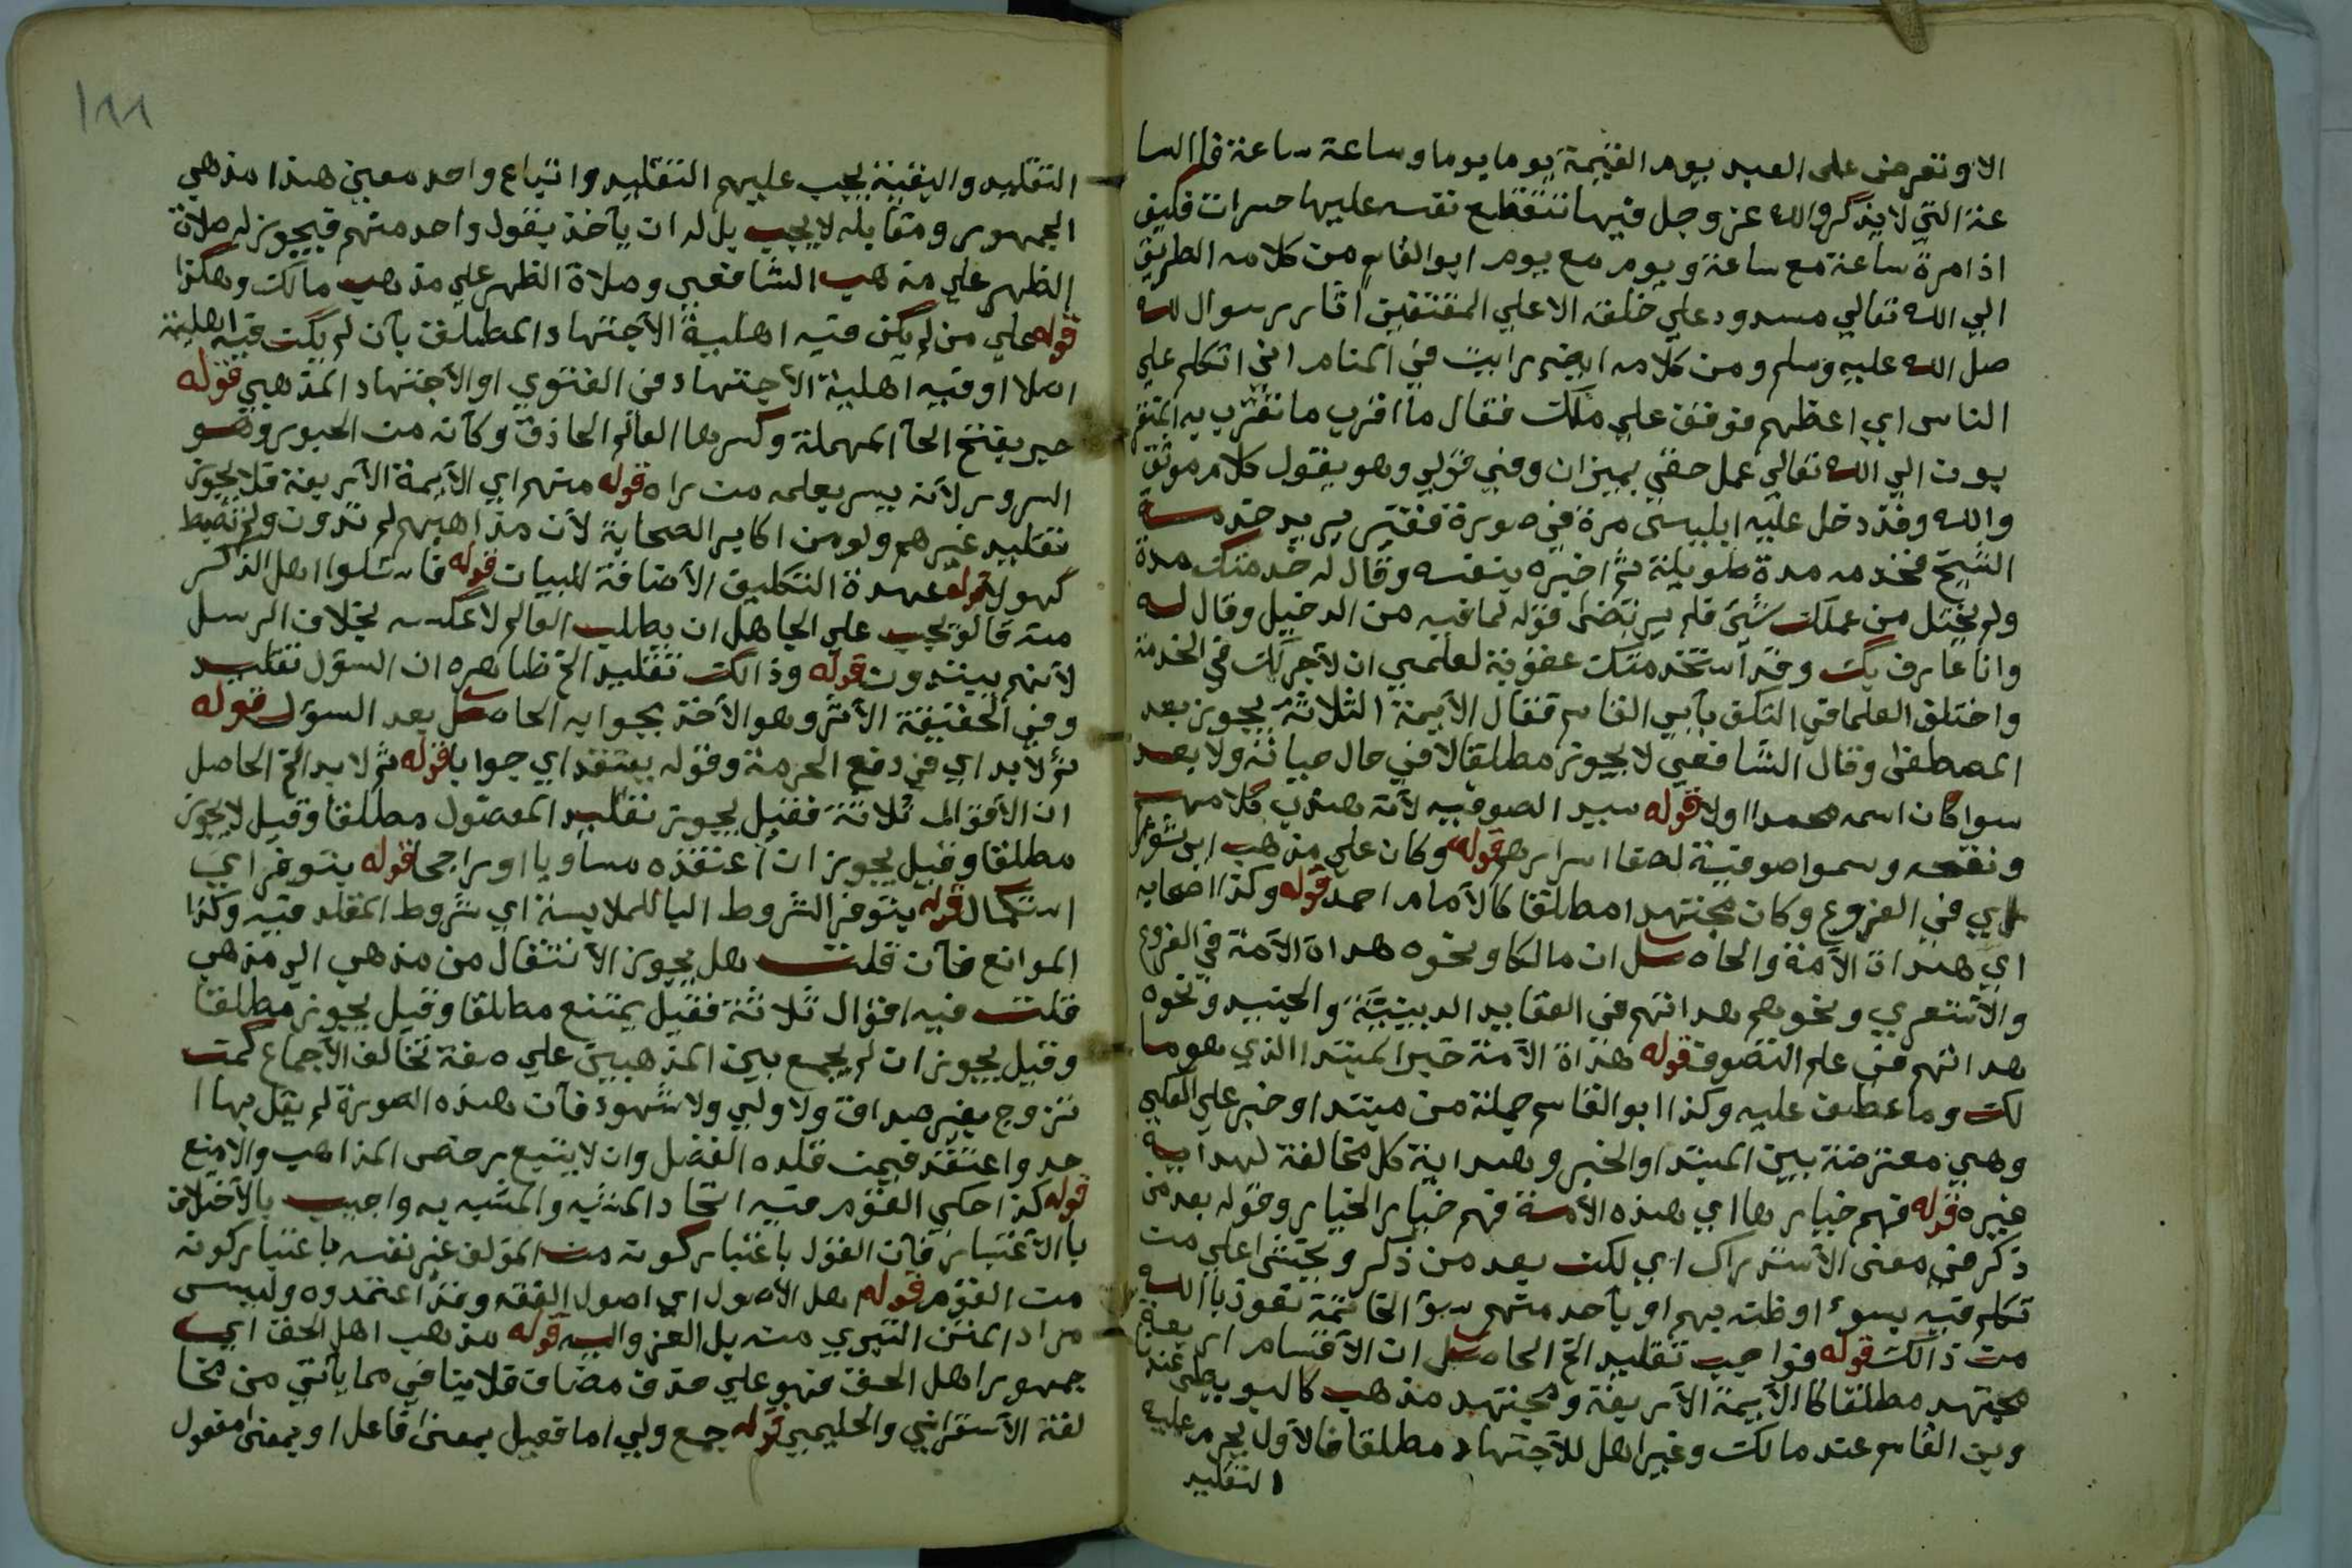 الا وتعرض على العبد يوم القيمة يوما يوما وساعة ساعة فالسا
عة التي لا يذكر والله عز وجل فيها تتقطع نفسه عليها حسرات فكيف
اذا مرة ساعة مع ساعة ويوم مع يوم ابو القاسم من كلامه الطريق
الي الله تعالي مسدود علي خلقه الا علي المقتفين اثار رسوال لله
صل الله عليه وسلم ومن كلامه ايضم رايت في المنام اني اتكلم علي
الناس اي اعظهم فوقف علي ملك فقال ما اقرب ما تقرب به المتقر
بون الي الله تعالي عمل خفي بميزان وفي فولي وهو يقول كلام موثق
والله وقد دخل عليه ابليس مرة في صورة فقير يريد خدمة
الشيخ فخدمه مدة طويلة ثم اخبره بنفسه وقال له خدمتك مدة
ولم يختل من عملك شئ فلم يرتضى قوله لما فيه من الدخيل وقال له
وانا عارف بك وقد استخدمتك عقوبة لعلمي ان لا اجر لك في الخدمة
واختلف العلما في التكن بأبي القاسم فقال الأيمة الثلاثة يجوز بعد
المصطفى وقال الشافعي لا يجوز مطلقا لا في حال حياته ولا بعد
سوا كان اسمه محمدا اولا قوله سيد الصوفيه لأنه هذب كلامهم
ونقحه وسموا صوفية لصفا اسرارهم قوله وكان علي مذهب ابى ثور
اي في الفروع وكان مجتهدا مطلقا كالأمام احمد قوله وكذا اصحابه
اي هداة الأمة والحاصل ان مالكا ونحوه هداة الأمة في الفروع
والأشعري ونحوهم هداتهم في العقايد الدينية والجنيد ونحوه
هداتهم في علم التصوف قوله هداة الأمة خبر المبتدا الذي هو ما
لك وما عطف عليه وكذا ابو القاسم جملة من مبتدا وخبر علي القلب
وهي معترضة بين المبتدا والخبر وهداية كل مخالفة لهداية
غيره قوله فهم خيارها اي هذه الأمة فهم خيار الخيار وقوله بعد من
ذكر في معنى الأستدراك اي لكن بعد من ذكر ويخشى على من
تكلم فيه بسوء اوظنه بهم او بأحد منهم سؤ الخاتمة نعوذ بالله
من ذالك قوله فواجب تقليد الخ الحاصل ان الأقسام اربعة
مجتهد مطلقا كالأيمة الأربعة ومجتهد مذهب كالبويطي عند نا
وبن القاسم عند مالك وغير اهل للأجتهاد مطلقا فالأول يحرم عليه
التقليد
١٨٨
التقليد والبقية يجب عليهم التقليد واتباع واحد معين هذا مذهب
الجمهور ومقابله لا يجب بل له ان يأخذ بقول واحد منهم فيجوز له صلاة
الظهر علي مذهب الشافعي وصلاة الظهر علي مذهب مالك وهكذا
قوله علي من لم يكن فيه اهلية الأجتهاد المطلق بأن لم يكن فيه اهلية
اصلا او فيه اهلية الأجتهاد في الفتوي او الأجتهاد المذهبي قوله
حبر بفتح الحآ المهملة وكسرها العالم الحاذق وكأنه من الحبور وهو
السرور لأنه يسر بعلمه من راه قوله منهم اي الأيمة الأربعة فلا يجوز
تقليد غيرهم ولو من اكابر الصحابة لأن مذاهبهم لم تدون ولم تضبط
كهولا قوله عهدة التكليف الأضافة للبيان قوله فاسئلوا اهل الذكر
منه قالو يجب علي الجاهل ان يطلب العالم لا عكسه بخلاف الرسل
لأنهم يبتدون قوله وذالك تقليد الخ ظاهره ان السؤل تقليد
وفي الحقيقة الأثر وهو الأخذ بجوابه الحاصل بعد السؤل قوله
ثم لابد اي في دفع الحرمة وقوله يعتقد اي جوابا قوله ثم لابد الخ الحاصل
ان الأقوال ثلاثة فقيل يجوز تقليد المفضول مطلقا وقيل لا يجوز
مطلقا وقيل يجوز ان اعتقده مساويا او راجحا قوله بتوفر اي
استكمال قوله بتوفر الشروط البا للملابسة اي شروط المقلد فيه وكذا
الموانع فآن قلت هل يجوز الأنتقال من مذهب الي مذهب
قلت فيه اقوال ثلاثة فقيل يمتنع مطلقا وقيل يجوز مطلقا
وقيل يجوز ان لم يجمع بين المذهبين علي صفة تخالف الأجماع كمن
تزوج بغير صداق ولا ولي ولا شهود فآن هذه الصورة لم يقل بها ا
حد واعتقد فيمن قلده الفضل وان لا يتبع رخص المذاهب والا منع
قوله كذا حكي القوم فيه اتحاد المشبه والمشبه به واجيب بالأختلاف
با الأعتبار فآن القول باعتبار كونه من المؤلف غير نفسه باعتبار كونه
من القوم قوله اهل الأصول اي اصول الفقه وقد اعتمدوه وليس
مراد المتن التبري منه بل العزو اليه قوله مذهب اهل الحق اي
جمهور اهل الحق فهو علي حذف مضاف فلا ينافي مما يأتي من مخا
لفة الأسفرايني والحليمي قوله جمع ولي اما فعيل بمعنى فاعل او بمعنى مفعول